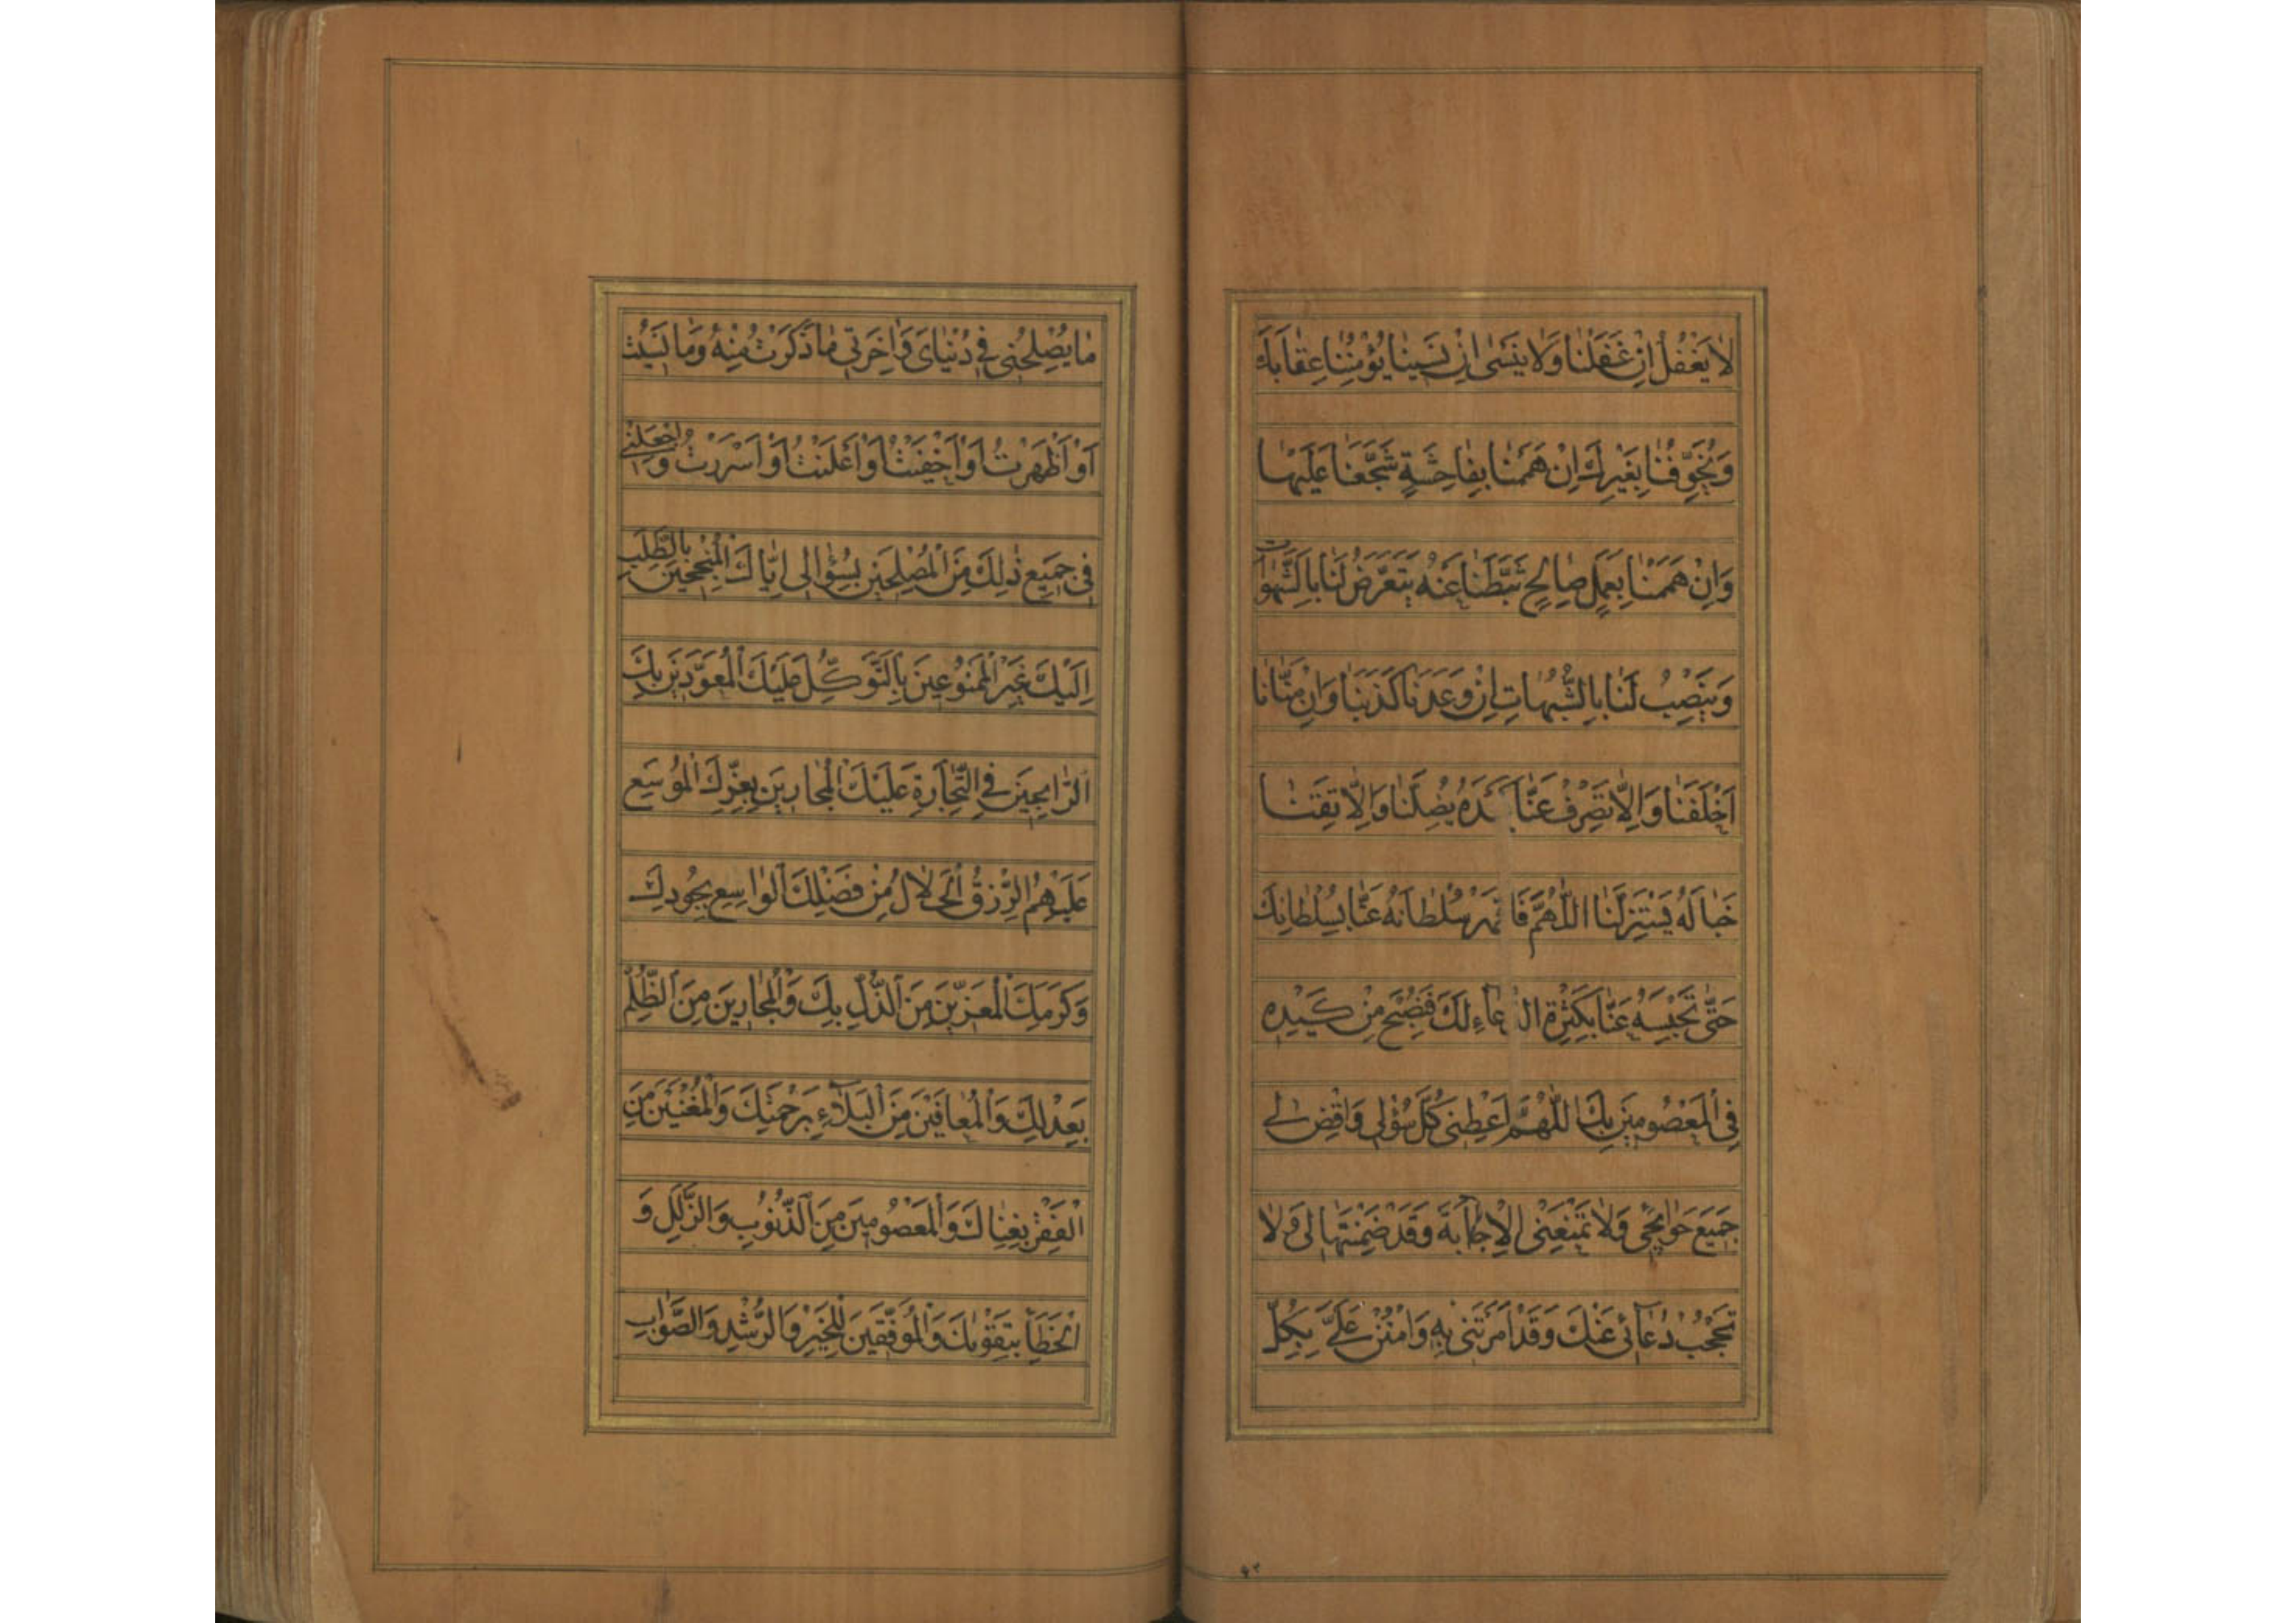 لَا يَغْفُلُ اِنْ غَفَلْنَا وَلَا يَنْسٰى اِنْ نَسِينَا يُؤْمِنُنَا عِقَابَكَ
وَيُخَوِّفُنَا بِغَيْرِكَ اِنْ هَمَمْنَا بِفَاحِشَةٍ شَجَّعَنَا عَلَيْهَا
وَاِنْ هَمَمْنَا بِعَمَلٍ صَالِحٍ ثَبَّطَنَا عَنْهُ يَتَعَرَّضُ لَنَا بِالشَّهَوَاتِ
وَيَنْصِبُ لَنَا بِالشُّبُهَاتِ اِنْ وَعَدَنَا كَذَبَنَا وَاِنْ مَنَّانَا
اَخْلَفَنَا وَاِلَّا تَصْرِفْ عَنَّا يُضِلَّنَا وَاِلَّا تَقِنَا
خَبَالَهُ يَسْتَزِلَّنَا اللّٰهُمَّ سُلْطَانَهُ عَنَّا بِسُلْطَانِكَ
حَتّٰى تَحْبِسَهُ عَنَّا بِكَثْرَةِ لَكَ فَنُصْبِحَ مِنْ كَيْدِهِ
فِى الْمَعْصُومِينَ بِكَ اللّٰهُمَّ اَعْطِنِى كُلَّ سُؤْلِى وَاقْضِ لِى
جَمِيعَ حَوَائِجِى وَلَا تَمْنَعْنِى الْاِجَابَةَ وَقَدْ ضَمِنْتَهَا لِى وَلَا
تَحْجُبْ دُعَآئِى عَنْكَ وَقَدْ اَمَرْتَنِى بِهِ وَامْنُنْ عَلَىَّ بِكُلِّ
۶۳
مَا يُصْلِحُنِى فِى دُنْيَاىَ وَاٰخِرَتِى مَا ذَكَرْتُ مِنْهُ وَمَا نَسِيتُ
اَوْ اَظْهَرْتُ اَوْ اَخْفَيْتُ اَوْ اَعْلَنْتُ اَوْ اَسْرَرْتُ وَاجْعَلْنِى
فِى جَمِيعِ ذٰلِكَ مِنَ الْمُصْلِحِينَ بِسُؤَالِى اِيَّاكَ الْمُنْجِحِينَ بِالطَّلَبِ
اِلَيْكَ غَيْرِ الْمَمْنُوعِينَ بِالتَّوَكُّلِ عَلَيْكَ الْمُعَوَّدِينَ بِكَ
الرَّابِحِينَ فِى التِّجَارَةِ عَلَيْكَ الْمُجَارِينَ بِعِزِّكَ الْمُوَسَّعِ
عَلَيْهِمُ الرِّزْقُ الْحَلَالُ مِنْ فَضْلِكَ الْوَاسِعِ بِجُودِكَ
وَكَرَمِكَ الْمُعَزِّينَ مِنَ الذُّلِّ بِكَ وَالْمُجَارِينَ مِنَ الظُّلْمِ
بِعَدْلِكَ وَالْمُعَافَيْنَ مِنَ الْبَلَآءِ بِرَحْمَتِكَ وَالْمُغْنَيْنَ مِنَ
الْفَقْرِ بِغِنَاكَ وَالْمَعْصُومِينَ مِنَ الذُّنُوبِ وَالزَّلَلِ وَ
الْخَطَاءِ بِتَقْوٰيكَ وَالْمُوَفَّقِينَ لِلْخَيْرِ وَالرُّشْدِ وَالصَّوَابِ